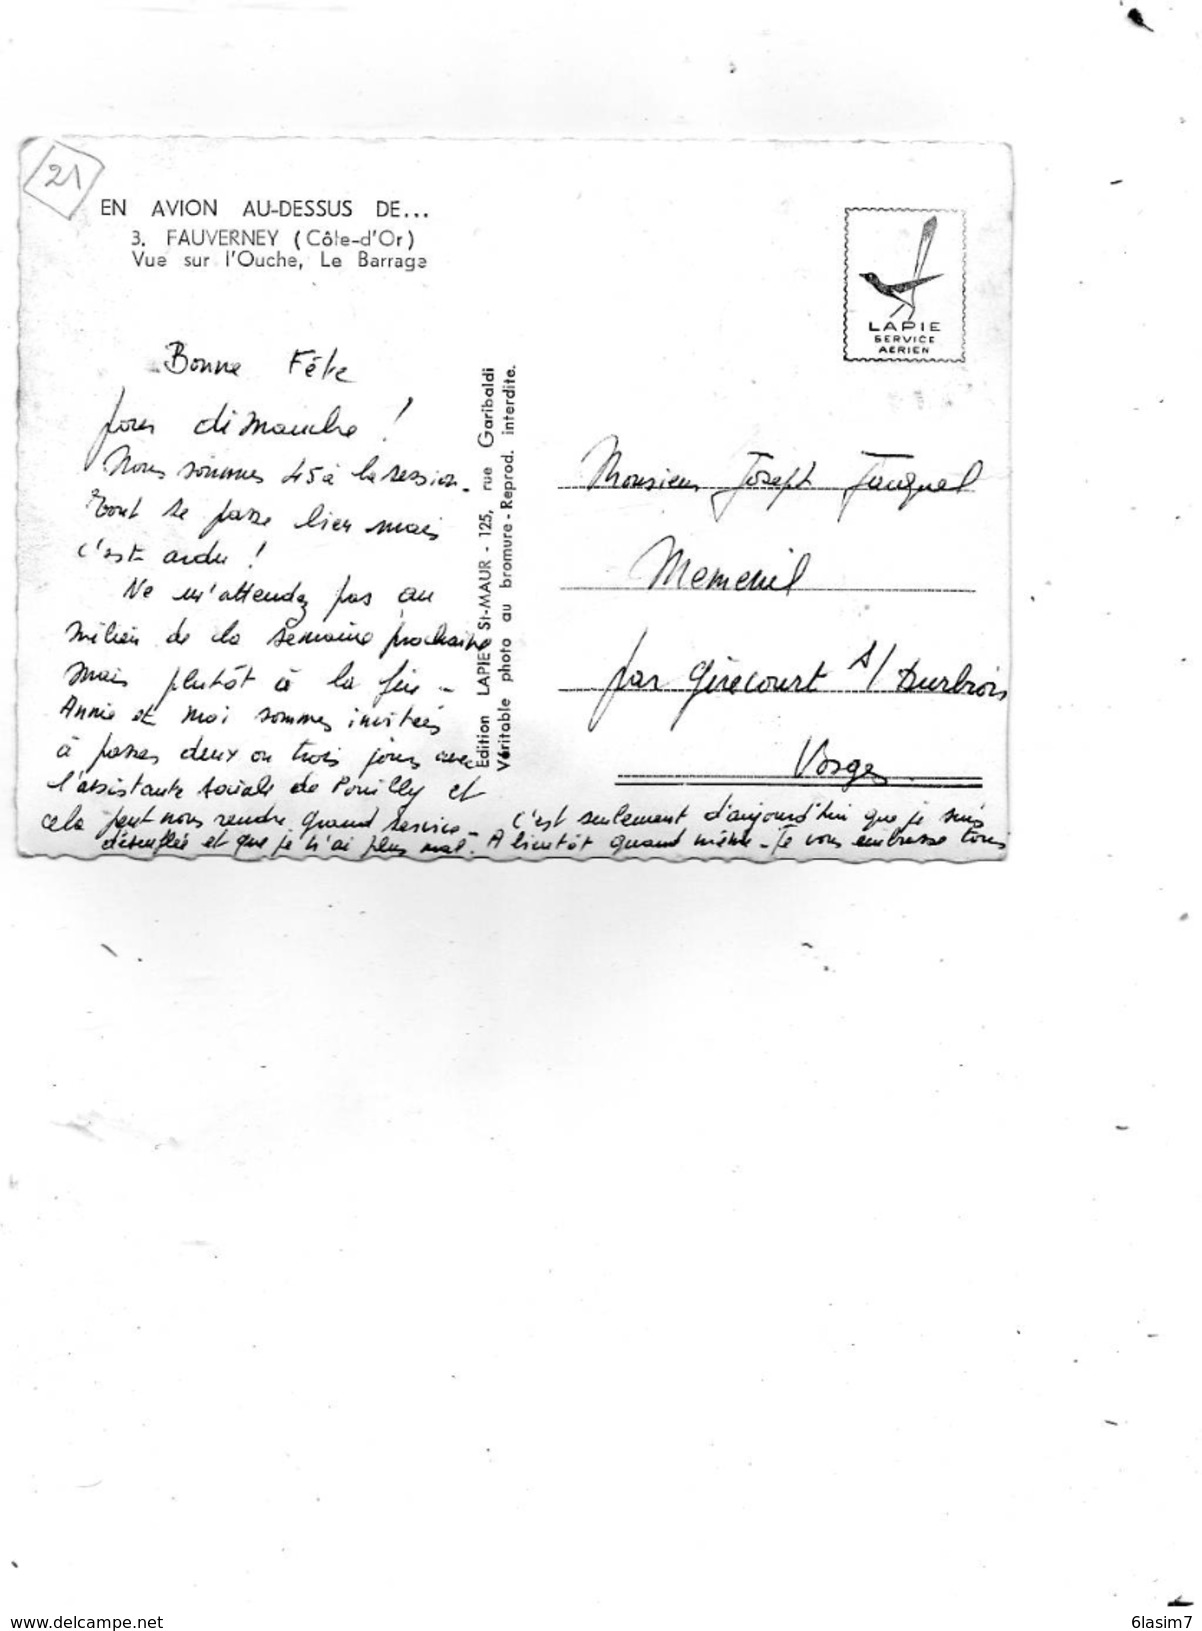 21
EN AVION AU-DESSUS DE...
3. FAUVERNEY (Côte-d'Or)
Vue sur l'Ouche, Le Barrage
LAPIE
SERVICE
AERIEN
Bonne Fête
pour dimanche !
Nous sommes 45 à la session.
Tout se passe bien mais
c'est ardu !
Ne m'attendez pas au
milieu de la semaine prochaine
mais plutôt à la fin -
Annie et moi sommes invitées
à passer deux ou trois jours avec
l'assistante sociale de Pouilly et
cela peut nous rendre grand service - c'est seulement d'aujourd'hui que je suis
désenflée et que je n'ai plus mal. A bientôt quand même - Je vous embrasse tous
Edition LAPIE St-MAUR - 125, rue Garibaldi
Véritable photo au bromure - Reprod. interdite.
Monsieur Joseph Fauquel
Memenil
par Girecourt s/ Durbion
Vosges
www.delcampe.net
6lasim7